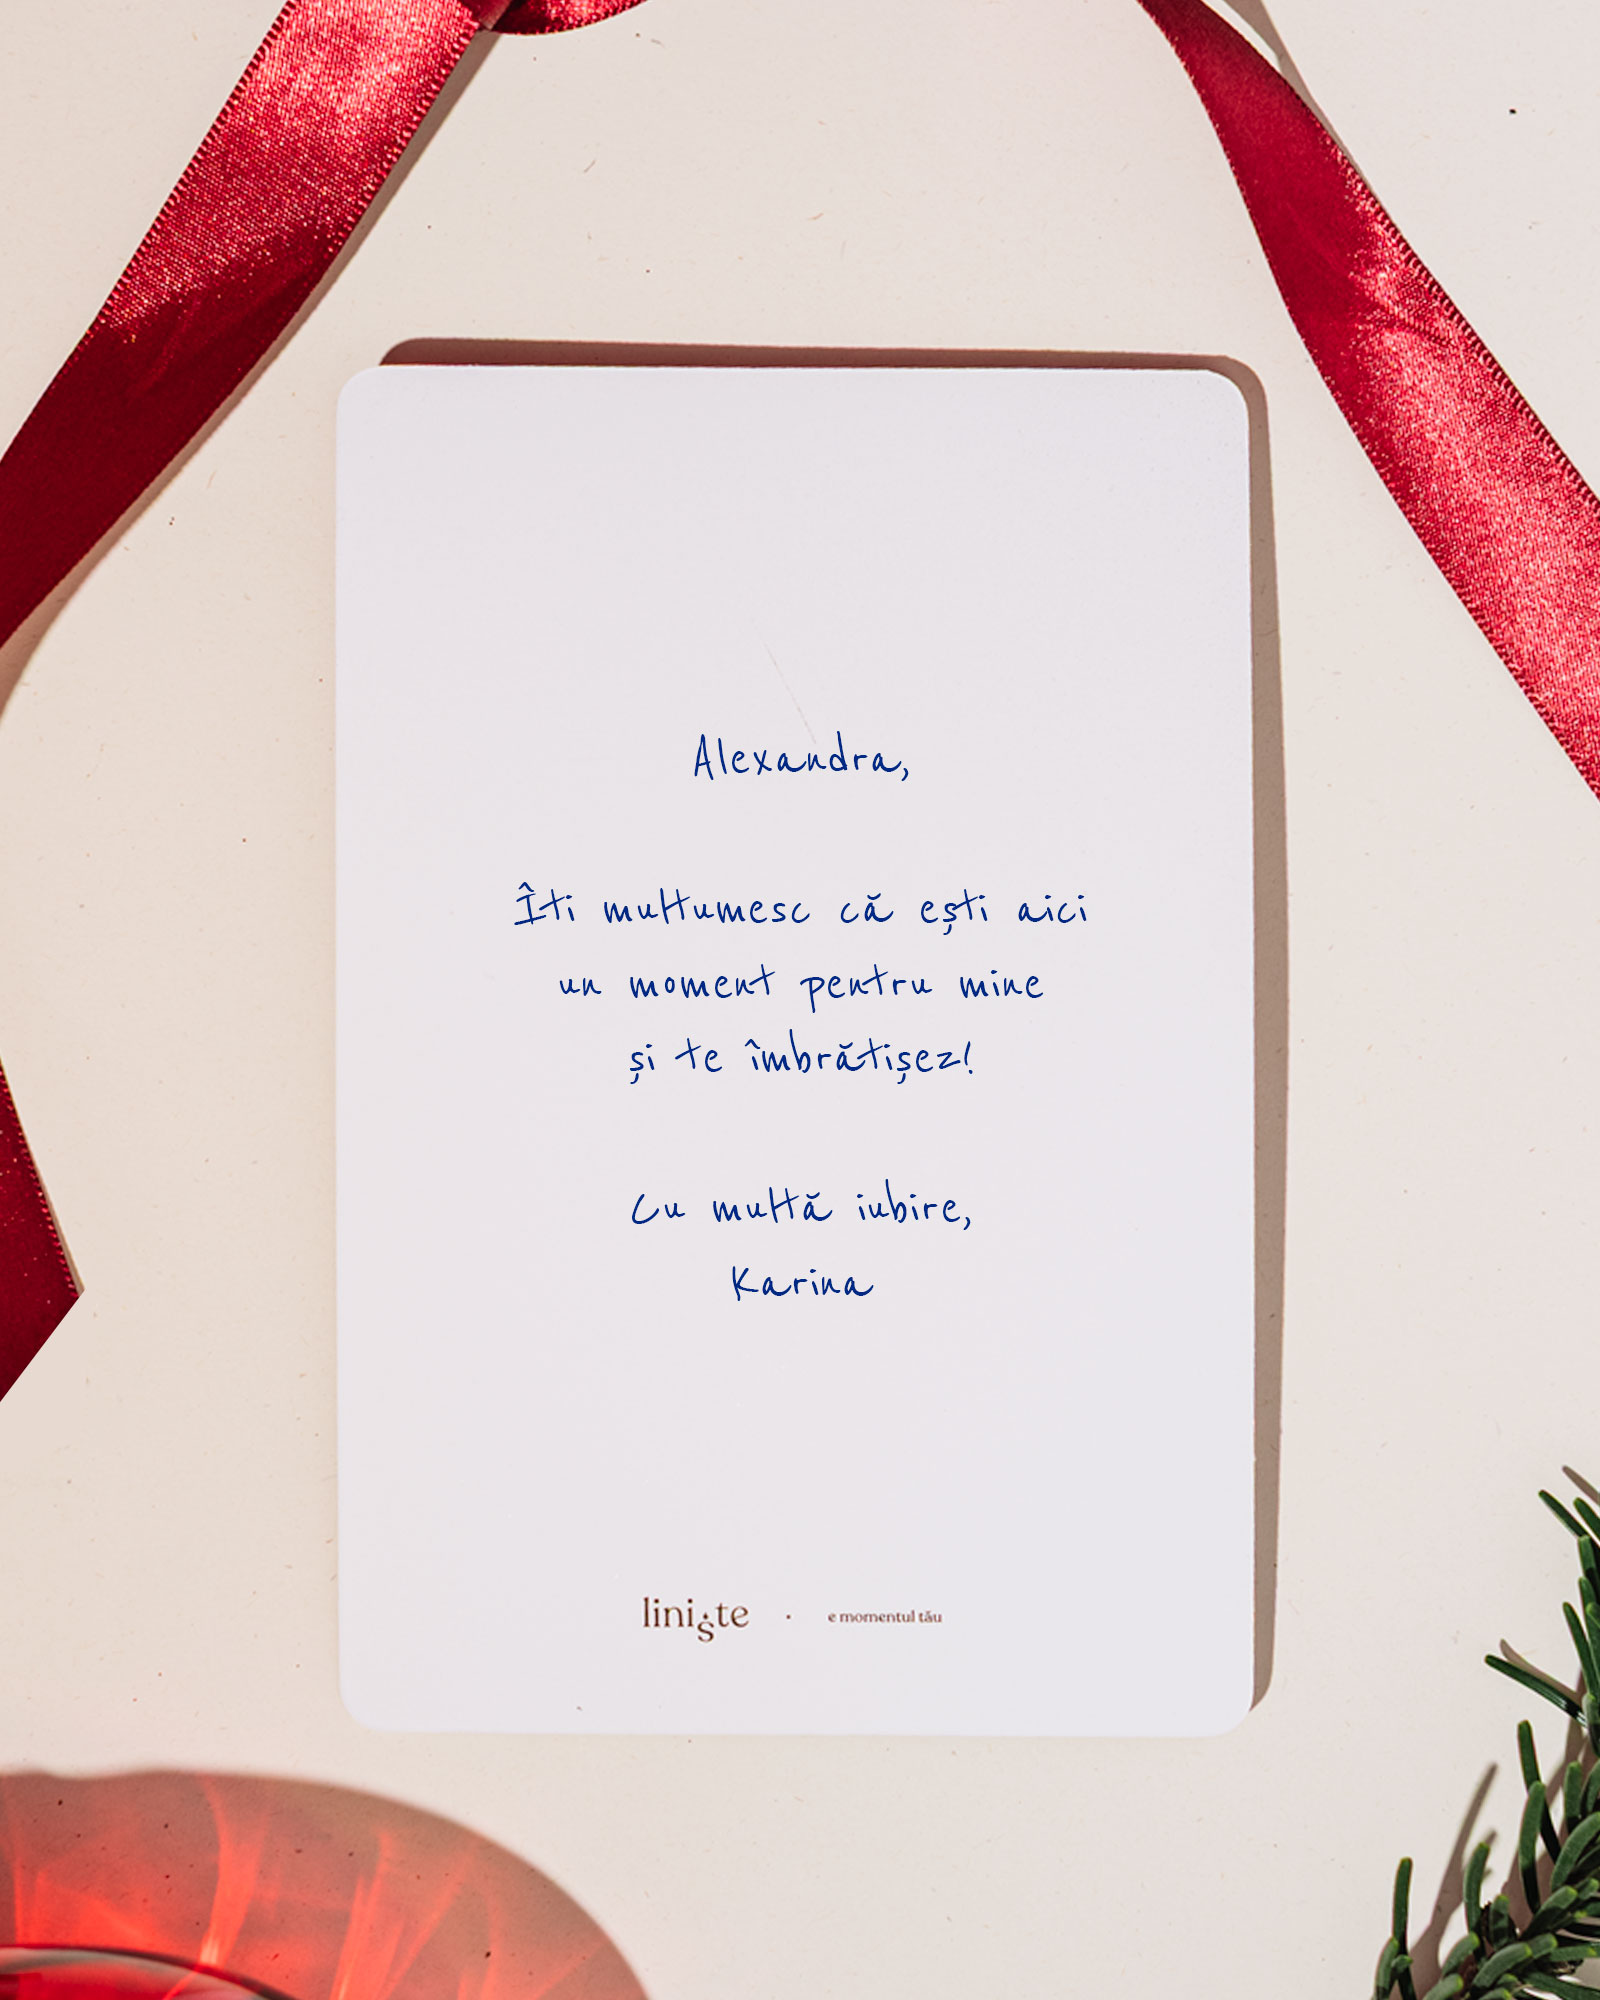 Alexandra,
Îti multumesc că ești aici
un moment pentru mine
și te îmbrătișez!
Cu multă iubire,
Karina
liniște · e momentul tău